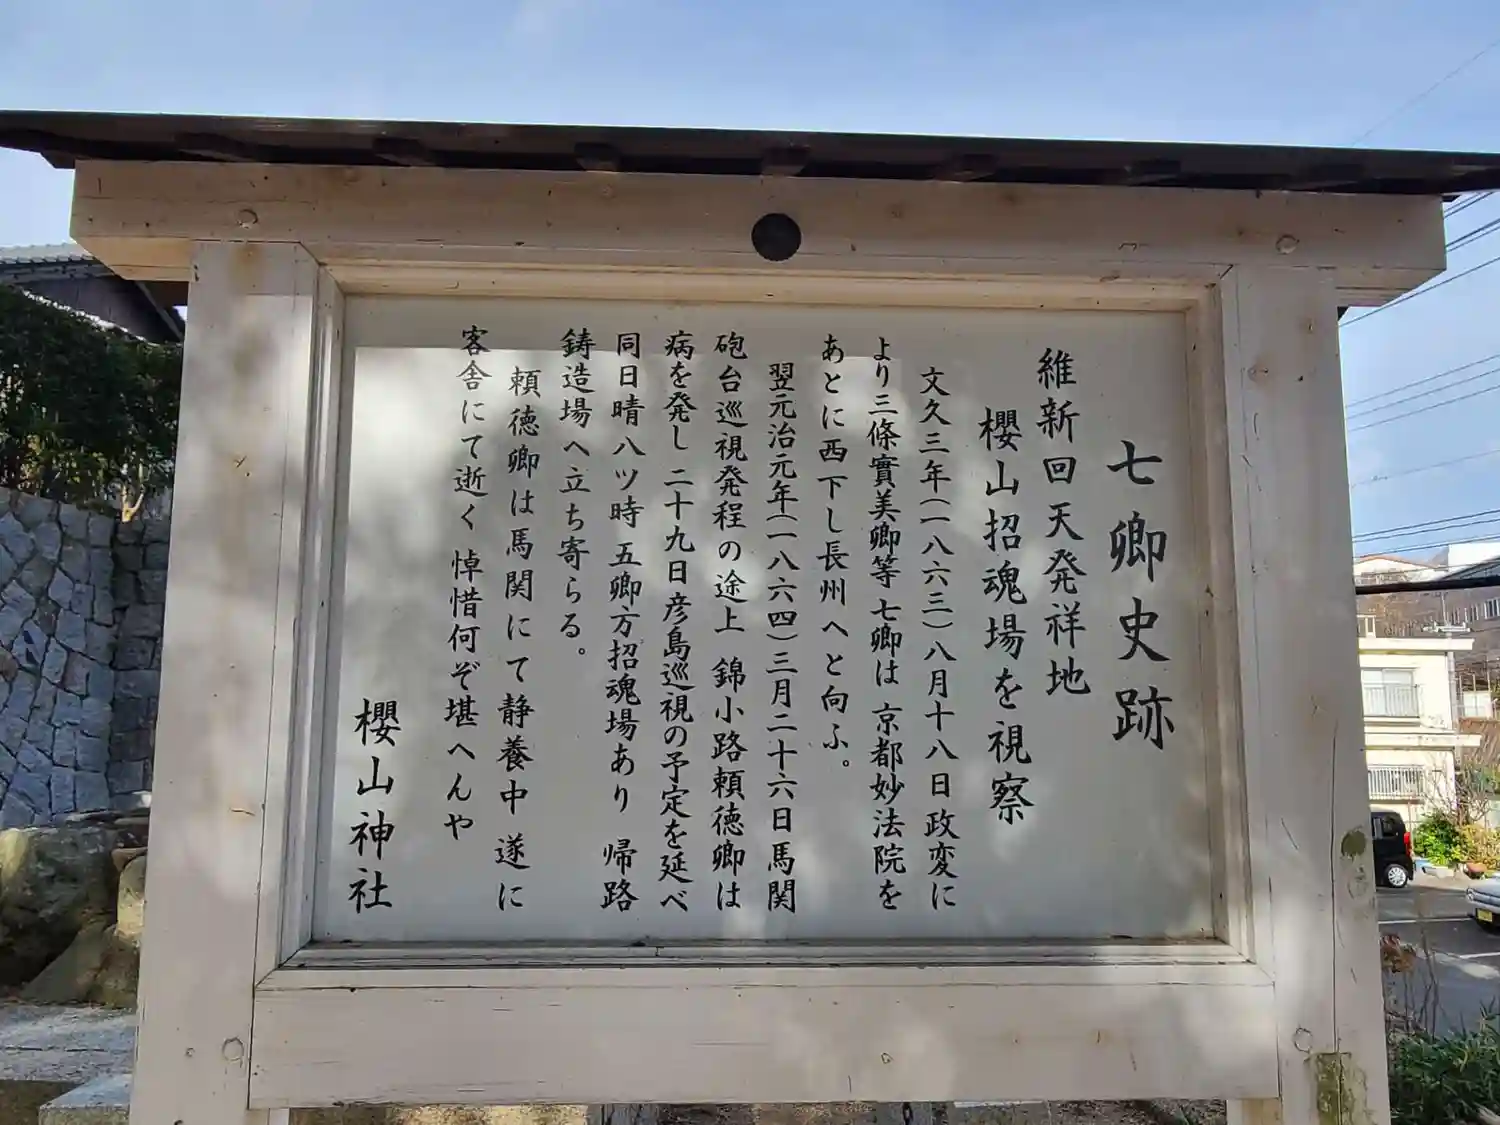 七卿史跡
維新回天発祥地
櫻山招魂場を視察
文久三年(一八六三)八月十八日政変に
より三條實美卿等七卿は京都妙法院を
あとに西下し長州へと向ふ。
翌元治元年(一八六四)三月二十六日馬関
砲台巡視発程の途上 錦小路頼徳卿は
病を発し二十九日彦島巡視の予定を延べ
同日晴八ツ時 五卿方招魂場あり 帰路
鋳造場へ立ち寄らる。
頼徳卿は馬関にて静養中 遂に
客舎にて逝く 悼惜何ぞ堪へんや
櫻山神社